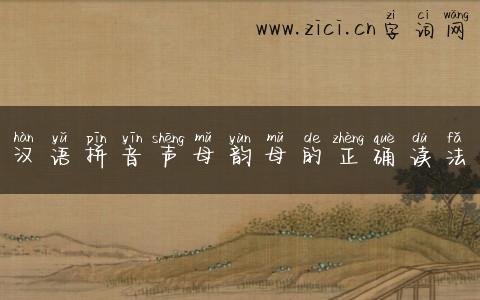 zì cí wǎng
www.zīcī.cn字词网
hàn yǔ pīn yīn shēng mǔ yùn mǔ de zhèng què dú fǎ
汉语拼音声母韵母的正确读法